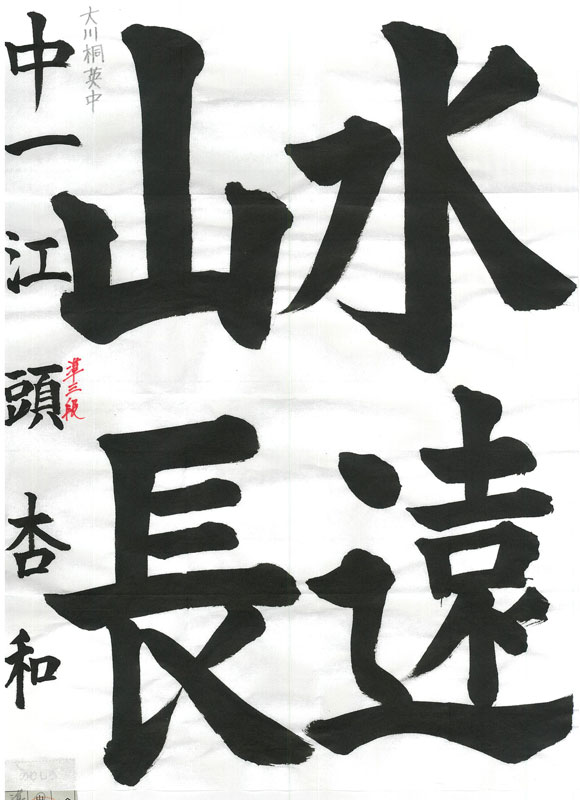 水遠
山長
大川桐英中
中一 江頭杏和
準三段